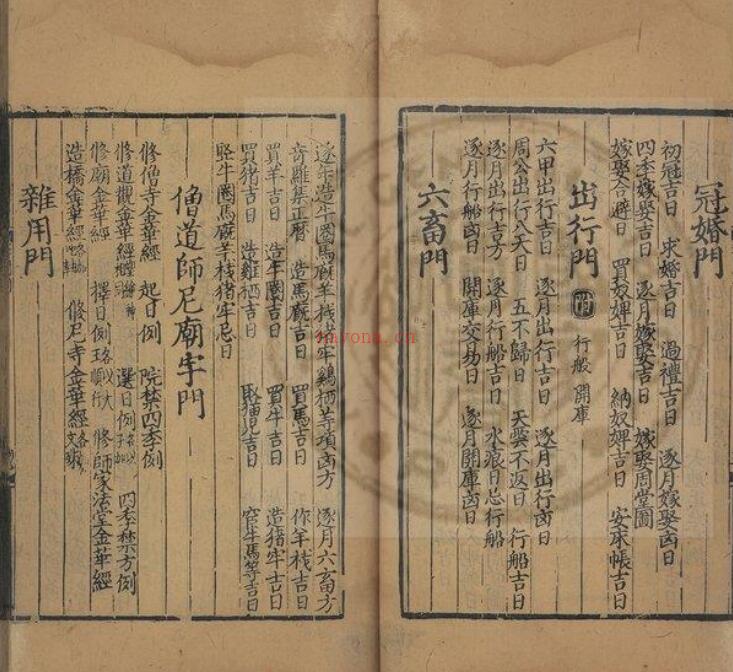 冠婚門
初冠吉日 求婚吉日 過禮吉日 逐月嫁娶凶日
四季嫁娶吉日 逐月嫁娶吉日 嫁娶周堂圖
嫁娶合避日 買奴婢吉日 納奴婢吉日 安床帳吉日
出行門 附 行船 開庫
六甲出行吉日 逐月出行吉日 逐月出行凶日
周公出行八天日 五不歸日 天雲不返日 行船吉日
逐月出行吉方 逐月行船吉日 水痕日忌行船
逐月行船凶日 開庫交易日 逐月開庫凶日
六畜門
逐年造牛圈馬廐羊棧猪牢鷄栖等項凶方 逐月六畜方
奇羅集正曆 造馬廐吉日 買馬吉日 作羊棧吉日
買羊吉日 造牛圈吉日 買牛吉日 造猪牢吉日
買猪吉日 造雞栖吉日 取猫児吉日 穿牛馬等吉日
竪牛圈馬廐羊栈猪牢忌日
僧道師尼廟宇門
修僧寺金華經 起日例 院禁四季例
修道觀金華經 選日例 四季禁方例
修廟金華經 擇日例 順行 修師家法堂金華經
造橋金華經 修尼寺金華經
雜用門
nyona.cn